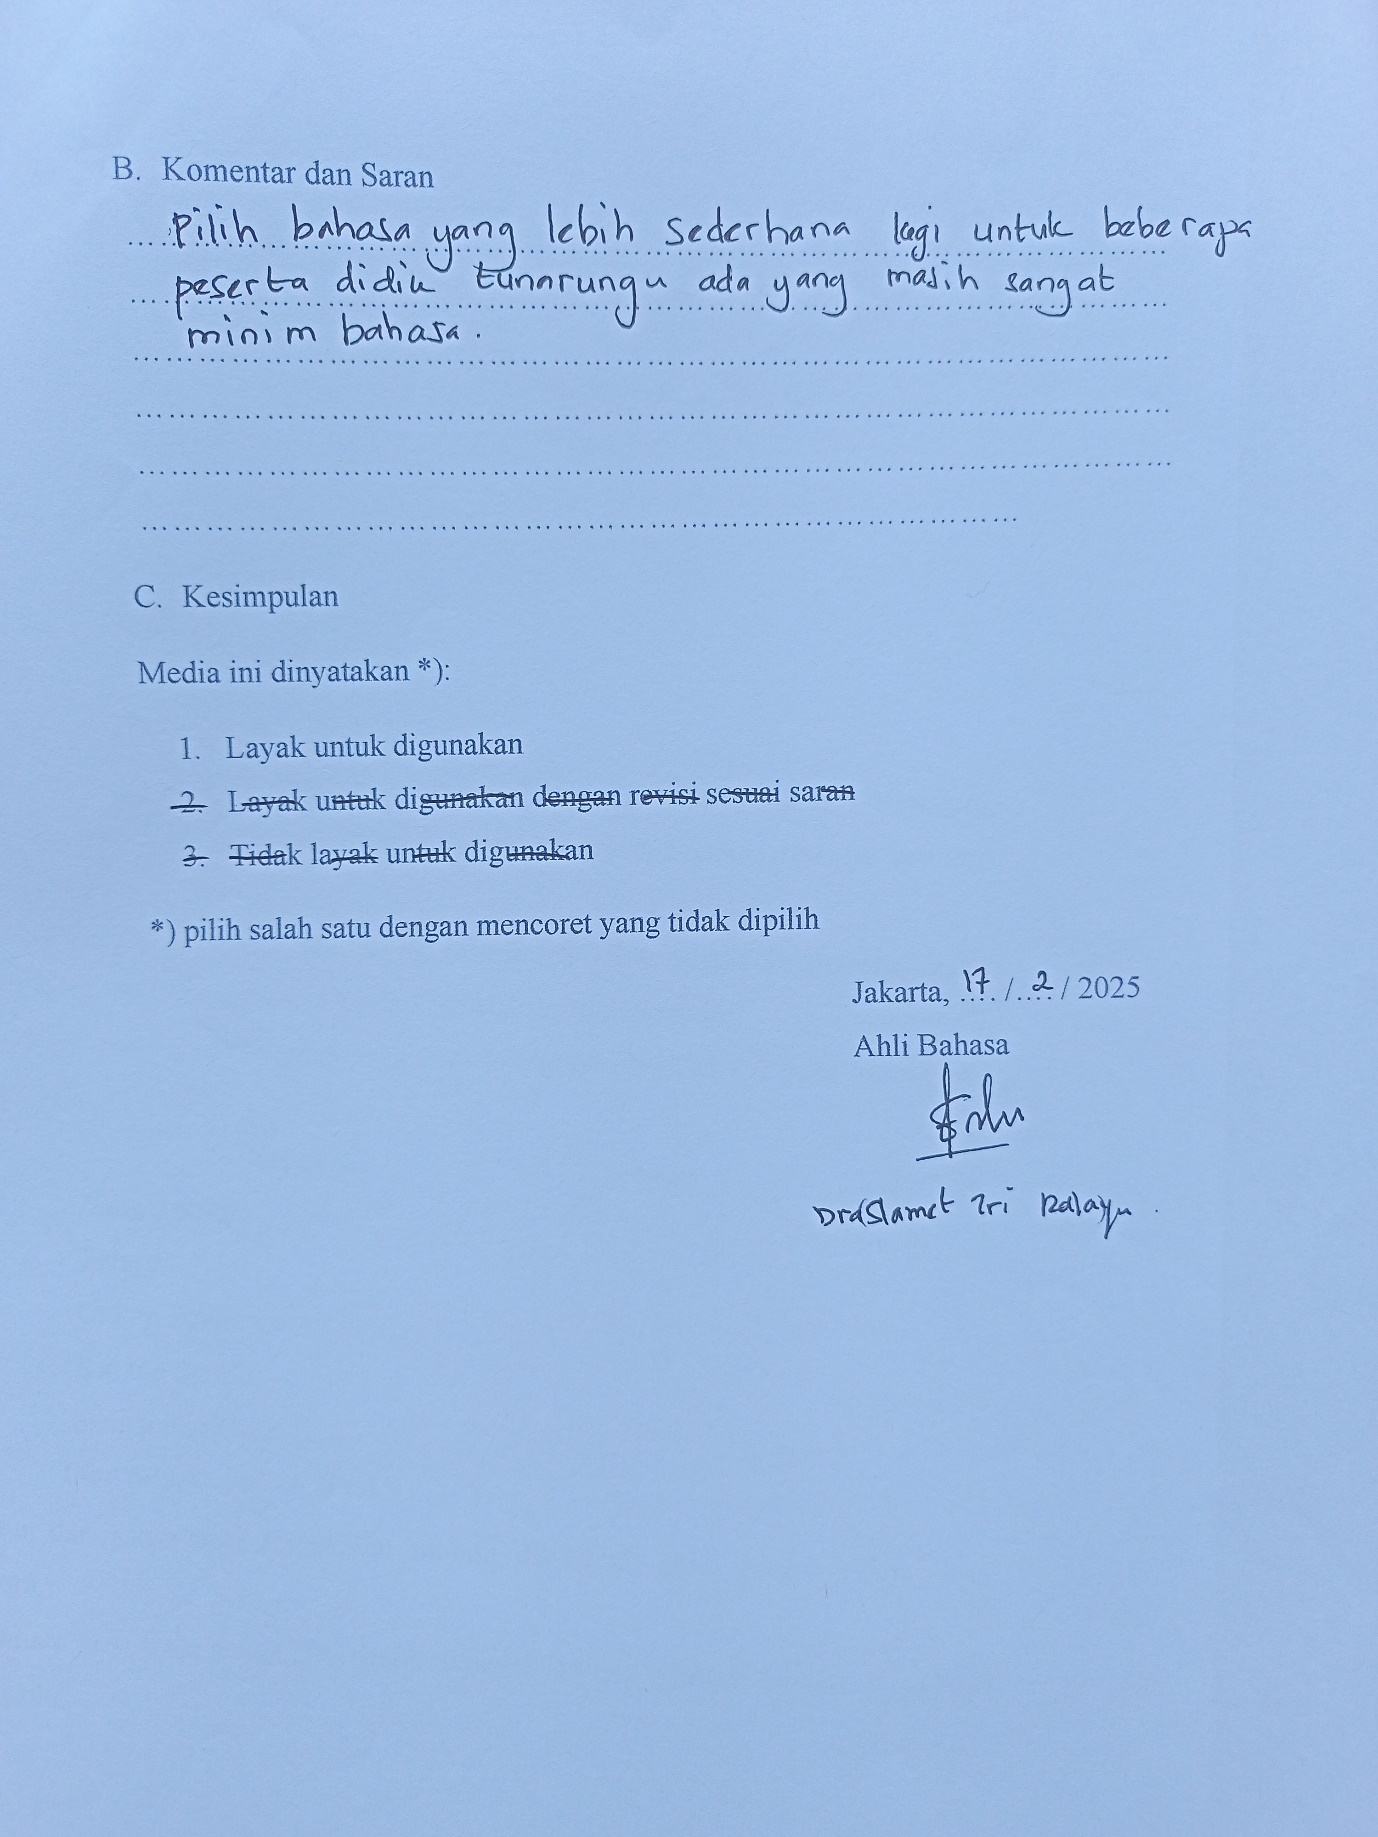 B. Komentar dan Saran
Pilih bahasa yang lebih sederhana lagi untuk beberapa
peserta didik tunarungu ada yang masih sangat
minim bahasa.
C. Kesimpulan
Media ini dinyatakan *):
1. Layak untuk digunakan
2. Layak untuk digunakan dengan revisi sesuai saran
3. Tidak layak untuk digunakan
*) pilih salah satu dengan mencoret yang tidak dipilih
Jakarta, 17 / 2 / 2025
Ahli Bahasa
Slamet Tri